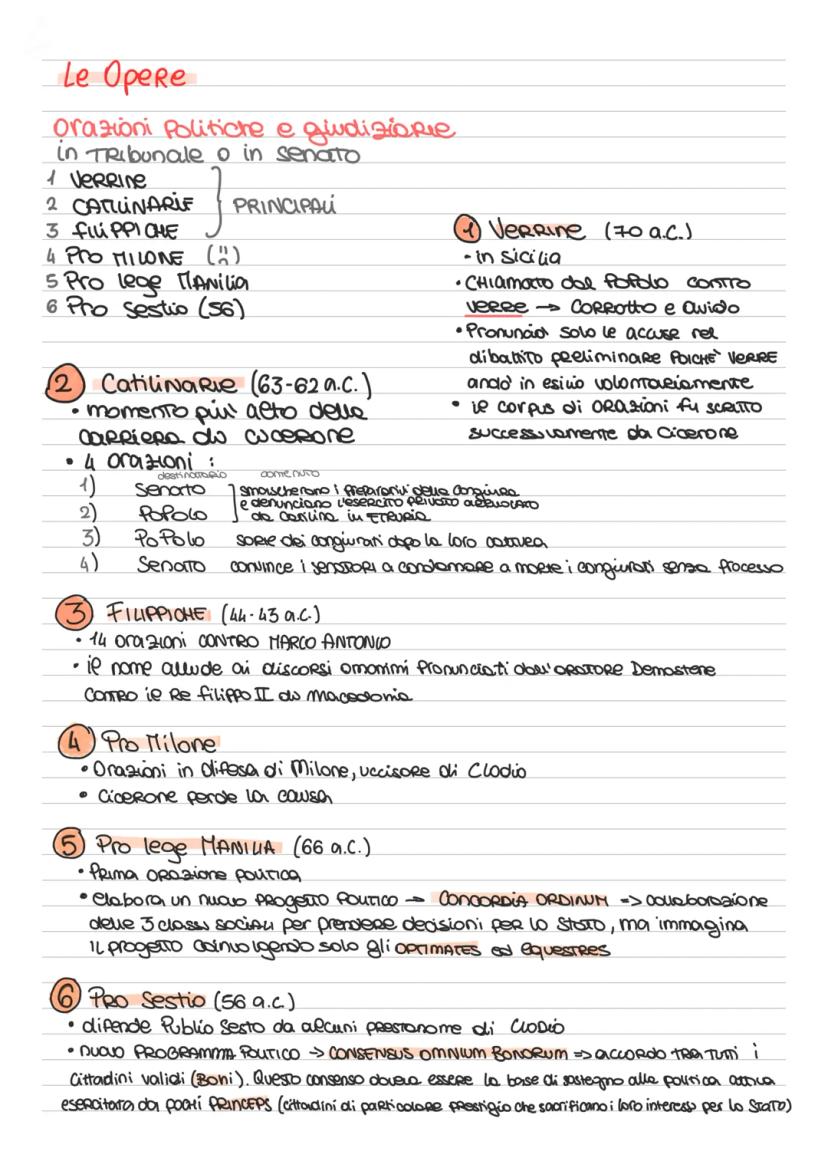 Le Opere
Orazioni Politiche e giudiziarie
in Tribunale o in senato
1 VERRINE
2 CATILINARIE
3 FILIPPICHE
PRINCIPALI
4 Pro MILONE (")
5 Pro lege MANilia
6 Pro Sestio (56)
1 VERRINE (70 a.C.)
- in Sicilia
• CHIAMATO dal POPOLO CONTRO
VERRE → CORROTTO e avido
• Pronunciò solo le accuse nel
dibattito preliminare POICHÈ VERRE
andò in esilio volontariamente
• il corpus di ORAZIONI fu SCRITTO
successivamente da Cicerone
2 Catilinarie (63-62 a.C.)
• momento più alto della
carriera di Cicerone
• 4 orazioni :
destinatario contenuto
1) Senato
2) POPOLO
smascherano i preparativi della congiura
e denunciano l'esercito privato arruolato
da Catilina in ETRURIA
3) POPOLO sorte dei congiurati dopo la loro cattura
4) Senato convince i senatori a condannare a morte i congiurati senza processo
3 FILIPPICHE (44-43 a.C.)
• 14 orazioni CONTRO MARCO ANTONIO
• il nome allude ai discorsi omonimi pronunciati dall'ORATORE Demostene
CONTRO il Re Filippo II di Macedonia
4 Pro Milone
• Orazioni in difesa di Milone, uccisore di Clodio
• Cicerone perde la causa
5 Pro lege MANILIA (66 a.C.)
• Prima orazione politica
• elabora un nuovo PROGETTO POLITICO → CONCORDIA ORDINUM => collaborazione
delle 3 classi sociali per prendere decisioni per lo Stato, ma immagina
il progetto coinvolgendo solo gli OPTIMATES ed EQUESTRES
6 PRO Sestio (56 a.C.)
• difende Publio Sesto da alcuni prestanome di Clodio
• nuovo PROGRAMMA POLITICO → CONSENSUS OMNIUM BONORUM => accordo TRA TUTTI i
cittadini validi (Boni). Questo consenso doveva essere la base di sostegno alla politica attiva
esercitata da pochi PRINCEPS (cittadini di particolare prestigio che sacrificano i loro interessi per lo Stato)